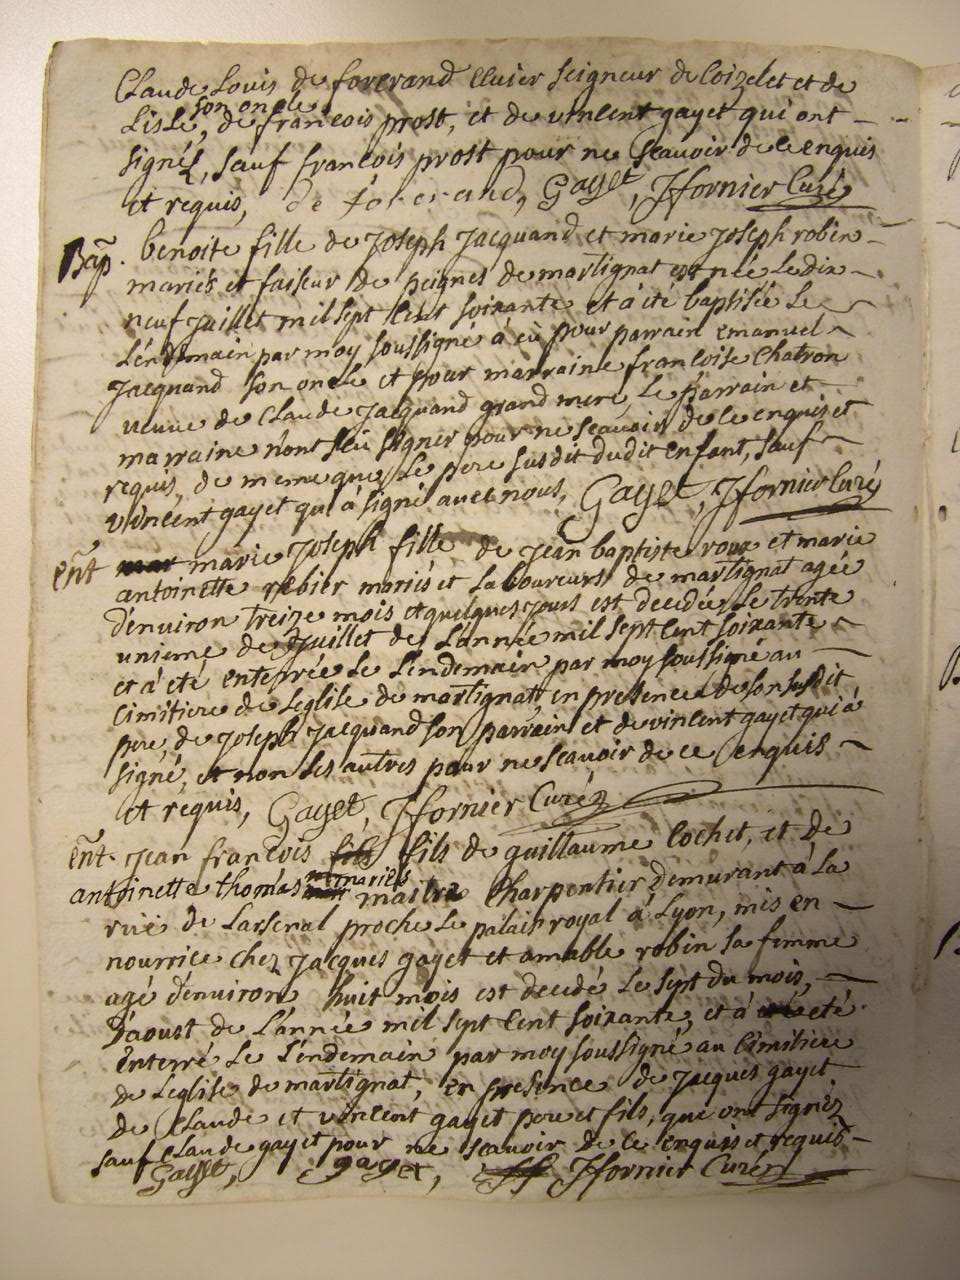 Claude Louis de forcrand Ecuier seigneur de Coizelet et de
son oncle
Lisle, de françois prost, et de vincent gayet qui ont
signéz, sauf françois prost pour ne scavoir de ce enquis
et requis, de forcrand, Gayet, Jfornier Curé
Bap̃. benoite fille de Joseph Jacquand et marie Joseph robin
mariés et faiseur de peignes de martignat est née le dix
neuf Juillet mil sept Cent soixante et à été baptisée le
L'endemain par moy soussigné à eû pour parrain emanuel
Jacquand son oncle et pour marraine françoise Chatron
veuve de Claude Jacquand grand mere, Le parrain et
marraine n'ont sceu signer pour ne scavoir de ce enquis et
requis, de meme que le pere susdit dudit enfant, sauf
vincent gayet qui à signé avec nous, Gayet, Jfornier Curé
eñt mar marie Joseph fille de Jean baptiste roux et marie
antoinette rebier mariés et Laboureurs de martignat agée
d'environ treize mois et quelques jours est decedée le trente
unieme de Juillet de L'année mil sept Cent soixante
et à eté enterrée le L'endemain par moy soussigné au
Cimitiere de Leglise de martignat, en presence de son susdit
pere, de Joseph Jacquand son parrain et de vincent gayet qui à
signé, et non les autres pour ne scavoir de ce enquis
et requis, Gayet, Jfornier Curé
eñt. Jean françois fils fils de guillaume Cochet, et de
mariés
antoinette thomas maitre Charpentier demurant à La
rüe de Larsenal proche le palais royal à Lyon, mis en
nourrice chez Jacques gayet et amable robin sa femme
agé d'environ huit mois est decedé le sept du mois,
D'aoust de L'année mil sept Cent soixante, et à eté
Enterré le L'endemain par moy soussigné au Cimitiere
de Leglise de martignat, en presence de Jacques gayet
de Claude et vincent gayet pere et fils, qui ont signéz
sauf Claude gayet pour ne scavoir de ce enquis et requis
Gayet, gayet, Jfornier Curé